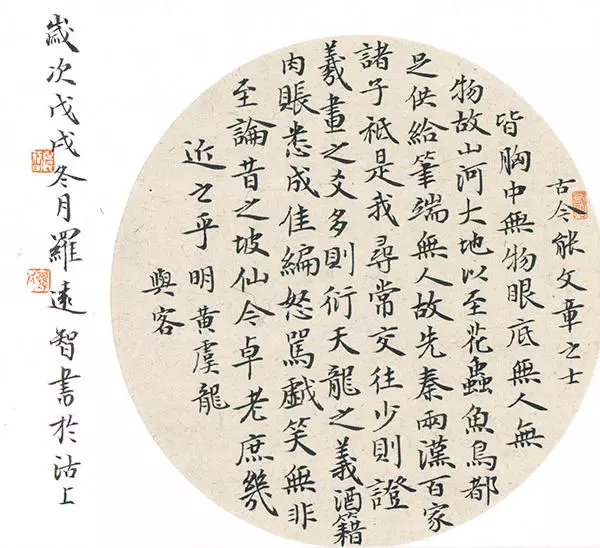 古今能文章之士
皆胸中無物眼底無人無
物故山河大地以至花蟲魚鳥都
足供給筆端無人故先秦兩漢百家
諸子祇是我尋常交往少則證
羲畫之爻多則衍天龍之義酒籍
肉賬悉成佳編怒罵戲笑無非
至論昔之坡仙今卓老庶幾
近之乎 明黃虞龍
與客
歲次戊戌冬月羅遠智書於沽上